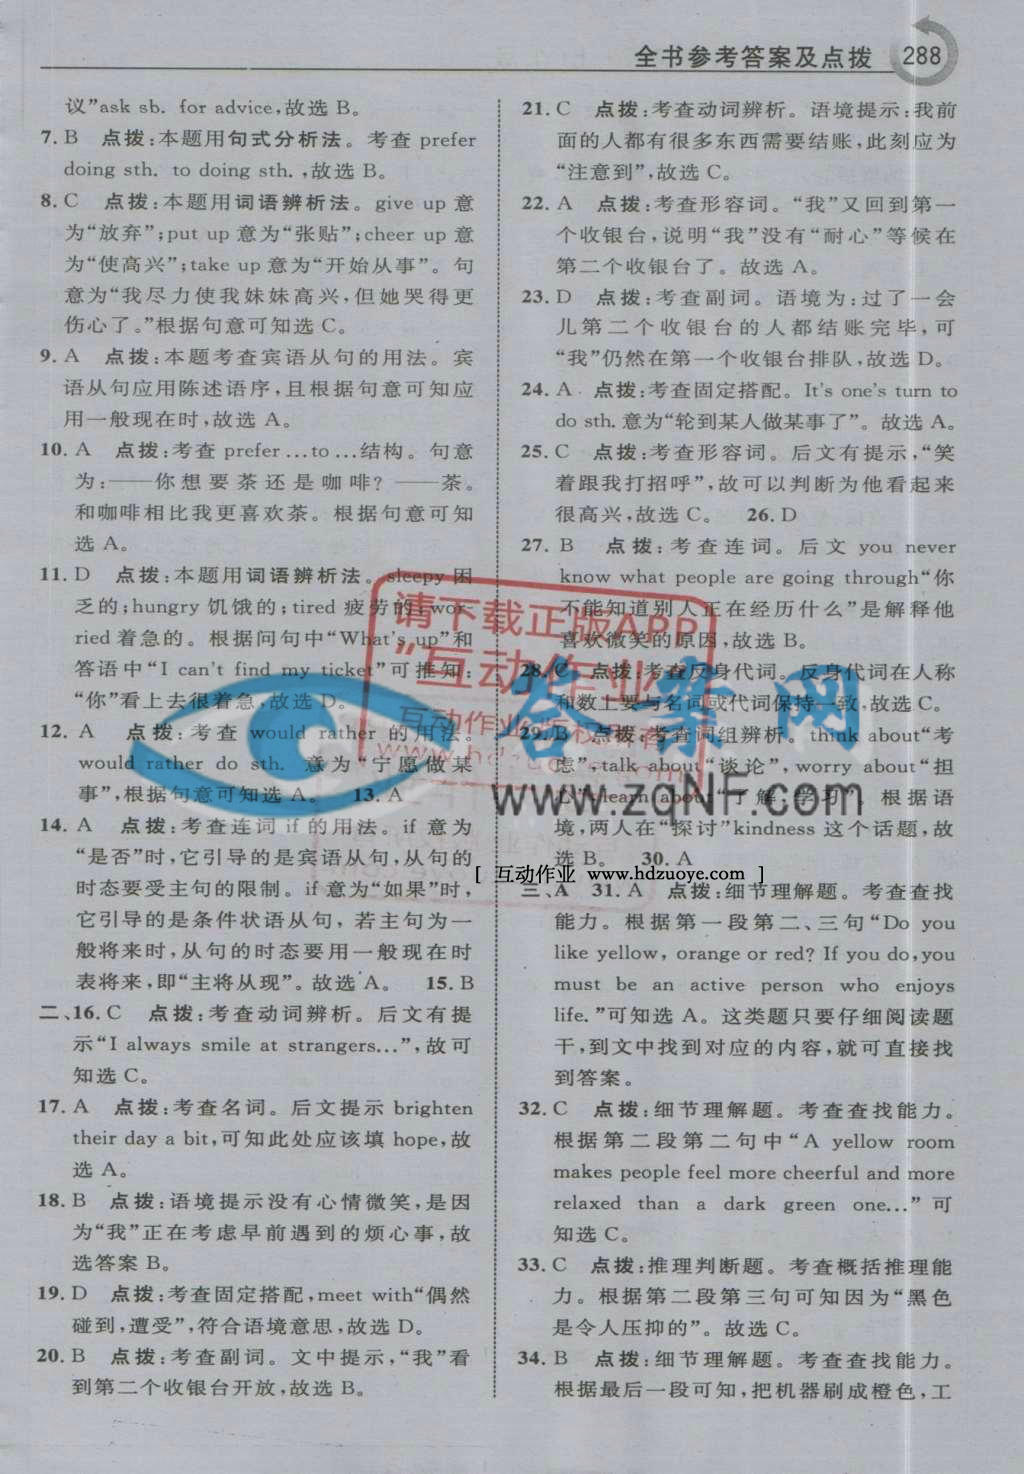 全书参考答案及点拨 288
议”ask sb. for advice,故选 B。
7. B 点拨:本题用句式分析法。考查 prefer
doing sth. to doing sth. ,故选 B。
8. C 点拨:本题用词语辨析法。give up 意
为“放弃”;put up 意为“张贴”;cheer up 意
为“使高兴”;take up 意为“开始从事”。句
意为“我尽力使我妹妹高兴,但她哭得更
伤心了。”根据句意可知选 C。
9. A 点拨:本题考查宾语从句的用法。宾
语从句应用陈述语序,且根据句意可知应
用一般现在时,故选 A。
10. A 点拨:考查 prefer …to …结构。句意
为:——你想要茶还是咖啡? ——茶。
和咖啡相比我更喜欢茶。根据句意可知
选 A。
11. D 点拨:本题用词语辨析法。sleepy 困
乏的;hungry 饥饿的;tired 疲劳的;wor-
ried 着急的。根据问句中“What's up”和
答语中“I can't find my ticket”可推知:
“你”看上去很着急,故选 D。
12. A 点拨:考查 would rather 的用法。
would rather do sth. 意为“宁愿做某
事”,根据句意可知选 A。 13. A
14. A 点拨:考查连词 if 的用法。if 意为
“是否”时,它引导的是宾语从句,从句的
时态要受主句的限制。if 意为“如果”时,
它引导的是条件状语从句,若主句为一
般将来时,从句的时态要用一般现在时
表将来,即“主将从现”。故选 A。 15. B
二、16. C 点拨:考查动词辨析。后文有提
示“I always smile at strangers…”,故可
知选 C。
17. A 点拨:考查名词。后文提示 brighten
their day a bit,可知此处应该填 hope,故
选 A。
18. B 点拨:语境提示没有心情微笑,是因
为“我”正在考虑早前遇到的烦心事,故
选答案 B。
19. D 点拨:考查固定搭配,meet with“偶然
碰到,遭受”,符合语境意思,故选 D。
20. B 点拨:考查副词。文中提示,“我”看
到第二个收银台开放,故选 B。
21. C 点拨:考查动词辨析。语境提示:我前
面的人都有很多东西需要结账,此刻应为
“注意到”,故选 C。
22. A 点拨:考查形容词。“我”又回到第一
个收银台,说明“我”没有“耐心”等候在
第二个收银台了。故选 A。
23. D 点拨:考查副词。语境为:过了一会
儿第二个收银台的人都结账完毕,可
“我”仍然在第一个收银台排队,故选 D。
24. A 点拨:考查固定搭配。It's one's turn to
do sth. 意为“轮到某人做某事了”。故选 A。
25. C 点拨:考查形容词。后文有提示,“笑
着跟我打招呼”,故可以判断为他看起来
很高兴,故选 C。 26. D
27. B 点拨:考查连词。后文 you never
know what people are going through“你
不能知道别人正在经历什么”是解释他
喜欢微笑的原因,故选 B。
28. C 点拨:考查反身代词。反身代词在人称
和数上要与名词或代词保持一致,故选 C。
29. B 点拨:考查词组辨析。think about“考
虑”,talk about“谈论”,worry about“担
心”,learn about“了解,学习”。根据语
境,两人在“探讨”kindness 这个话题,故
选 B。 30. A
三、A 31. A 点拨:细节理解题。考查查找
能力。根据第一段第二、三句“Do you
like yellow, orange or red? If you do,you
must be an active person who enjoys
life.”可知选 A。这类题只要仔细阅读题
干,到文中找到对应的内容,就可直接找
到答案。
32. C 点拨:细节理解题。考查查找能力。
根据第二段第二句中“A yellow room
makes people feel more cheerful and more
relaxed than a dark green one…”可
知选 C。
33. C 点拨:推理判断题。考查概括推理能
力。根据第二段第三句可知因为“黑色
是令人压抑的”。故选 C。
34. B 点拨:细节理解题。考查查找能力。
根据最后一段可知,把机器刷成橙色,工
请下载正版APP
“互动作业”
互动作业版权所有
www.hdzuoye.com
答案网
www.zqNF.com
[ 互动作业 www.hdzuoye.com ]